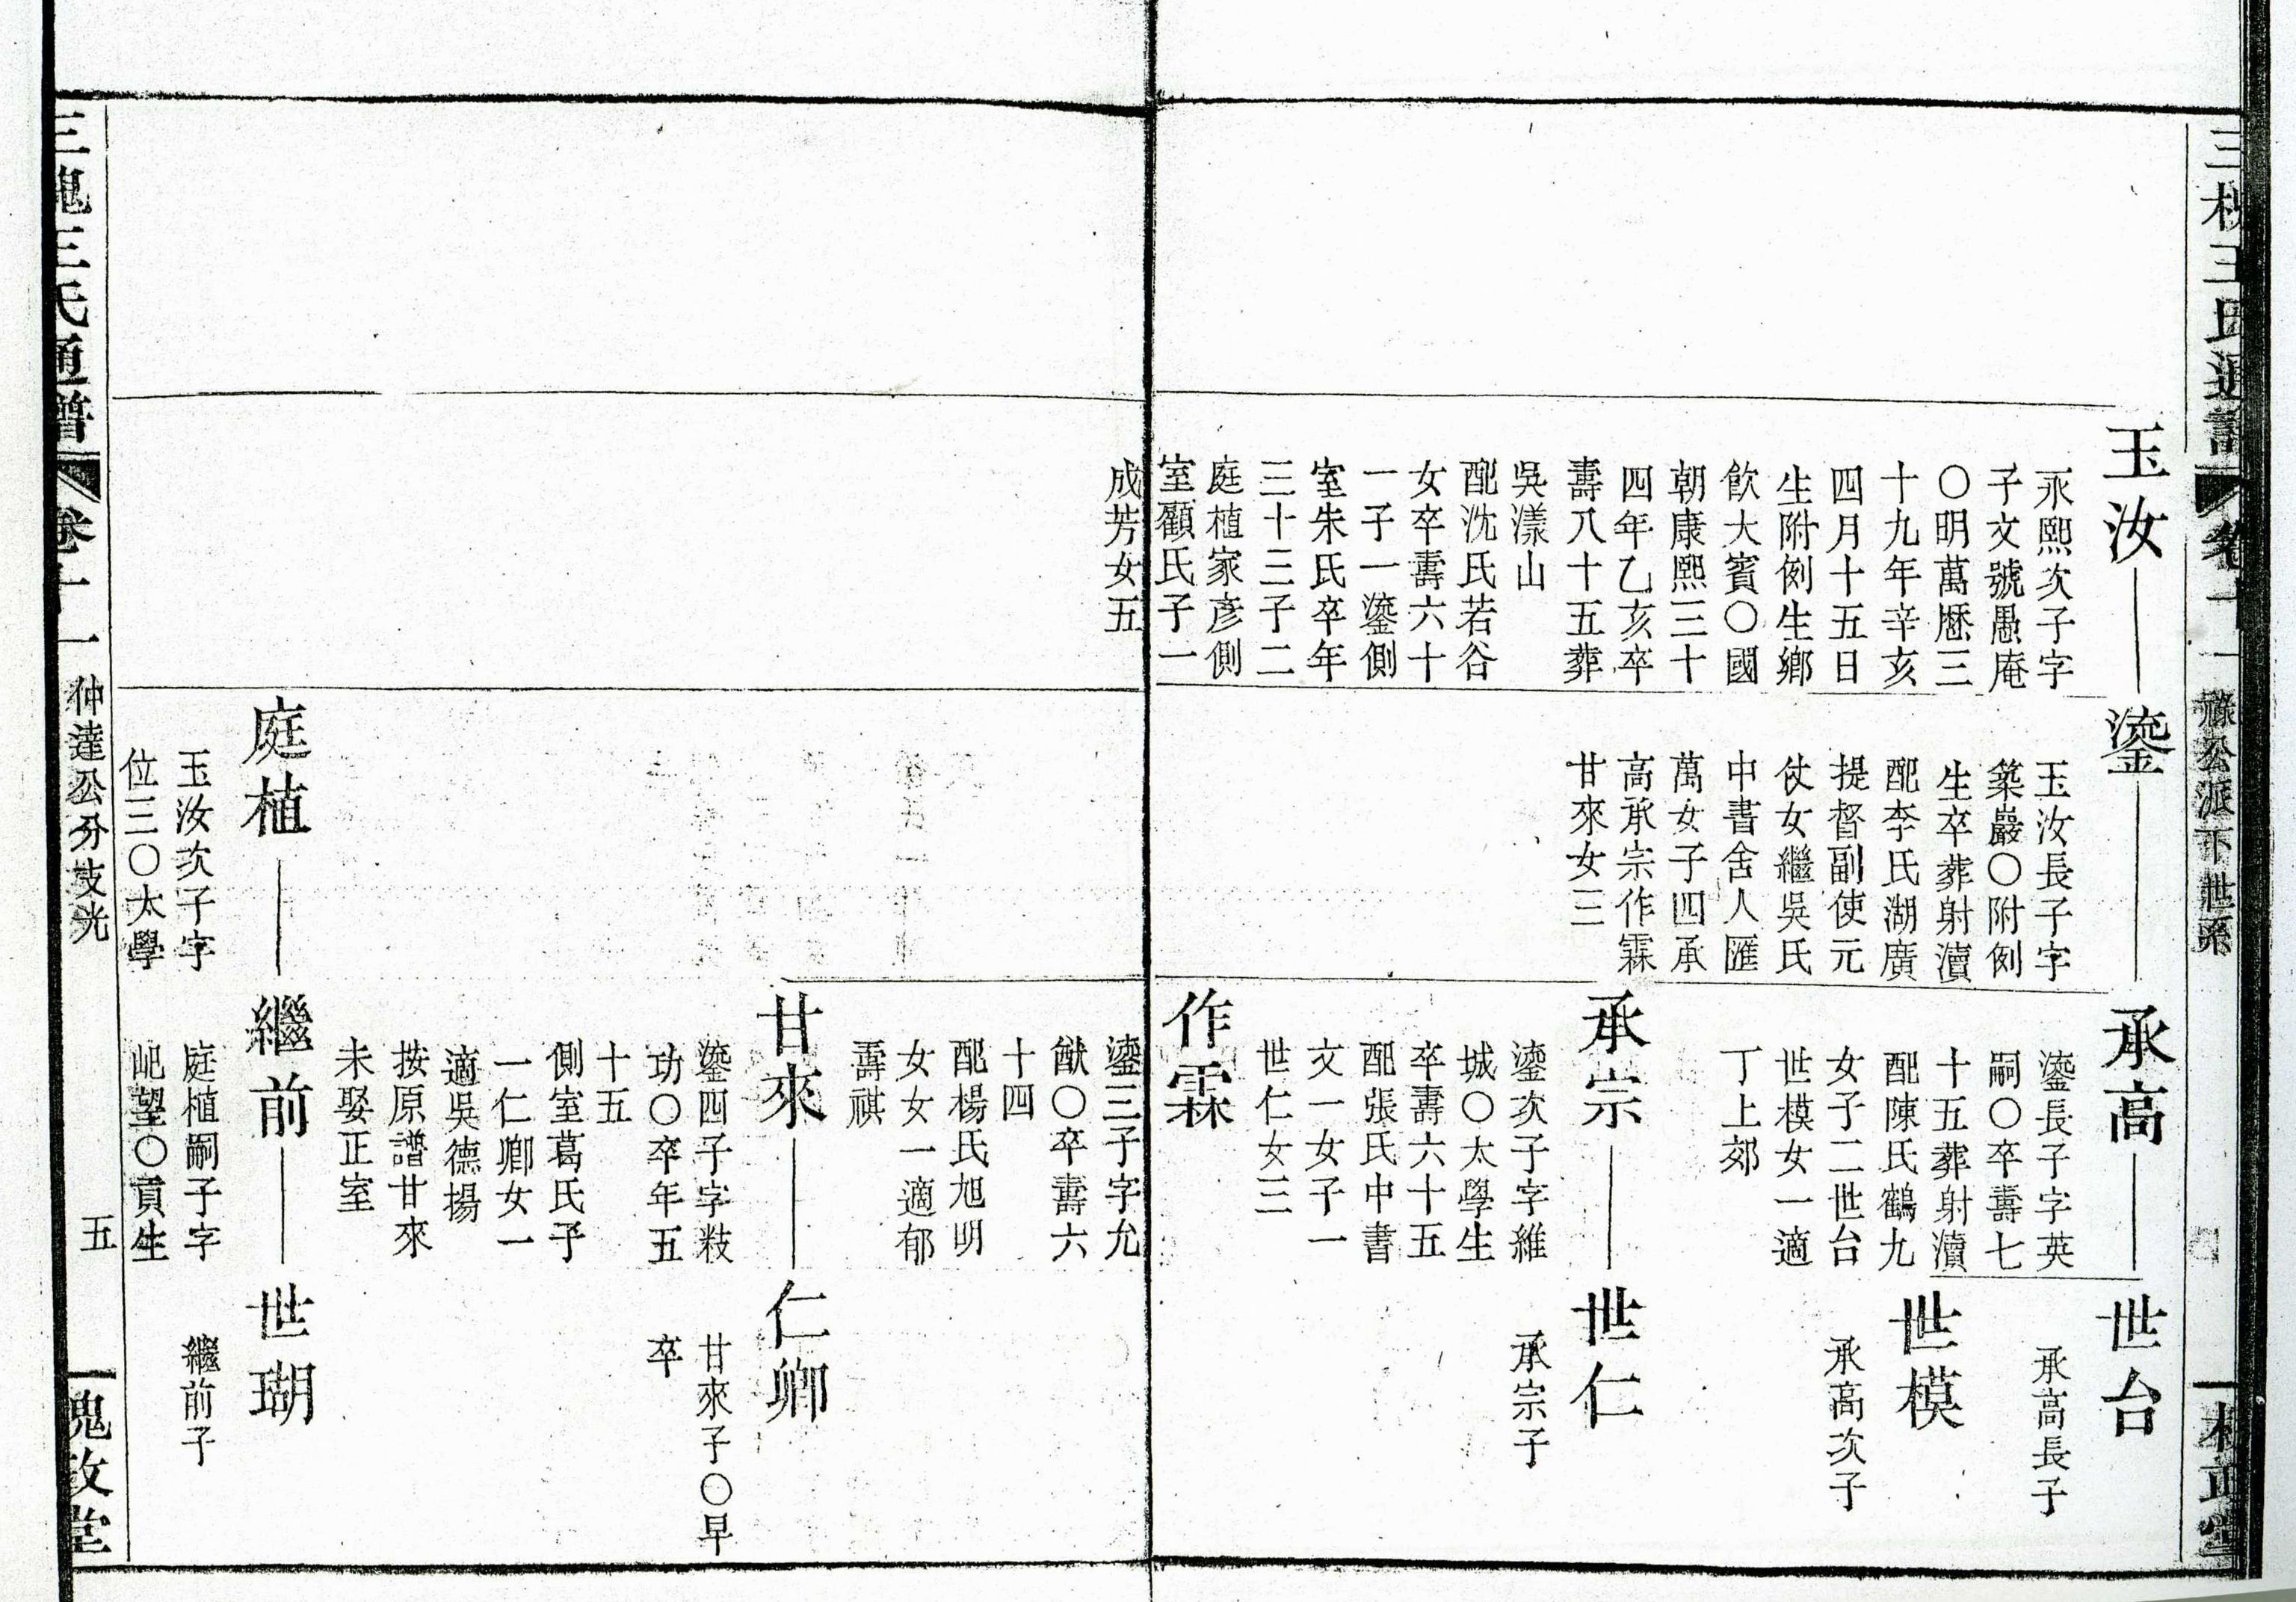 三槐王氏通譜
卷十一
玉汝
永熙次子字
子文號愚庵
〇明萬曆三
十九年辛亥
四月十五日
生附例生鄉
飲大賓〇國
朝康熙三十
四年乙亥卒
壽八十五葬
吳漾山
配沈氏若谷
女卒壽六十
一子一鎏側
室朱氏卒年
三十三子二
庭植家彥側
室顧氏子一
成芳女五
鎏
玉汝長子字
築巖〇附例
生卒葬射瀆
配李氏湖廣
提督副使元
仗女繼吳氏
中書舍人匯
萬女子四承
高承宗作霖
甘來女三
承高
鎏長子字英
嗣〇卒壽七
十五葬射瀆
配陳氏鶴九
女子二世台
世模女一適
丁上郊
世台
承高長子
世模
承高次子
承宗
鎏次子字維
城〇太學生
卒壽六十五
配張氏中書
文一女子一
世仁女三
世仁
承宗子
作霖
鎏三子字允
猷〇卒壽六
十四
配楊氏旭明
女女一適郁
壽祺
甘來
鎏四子字敉
功〇卒年五
十五
側室葛氏子
一仁卿女一
適吳德揚
按原譜甘來
未娶正室
仁卿
甘來子〇早
卒
庭植
玉汝次子字
位三〇太學
繼前
庭植嗣子字
屺望〇貢生
世瑚
繼前子
三槐王氏通譜
卷十一
仲達公分支光
五
槐政堂